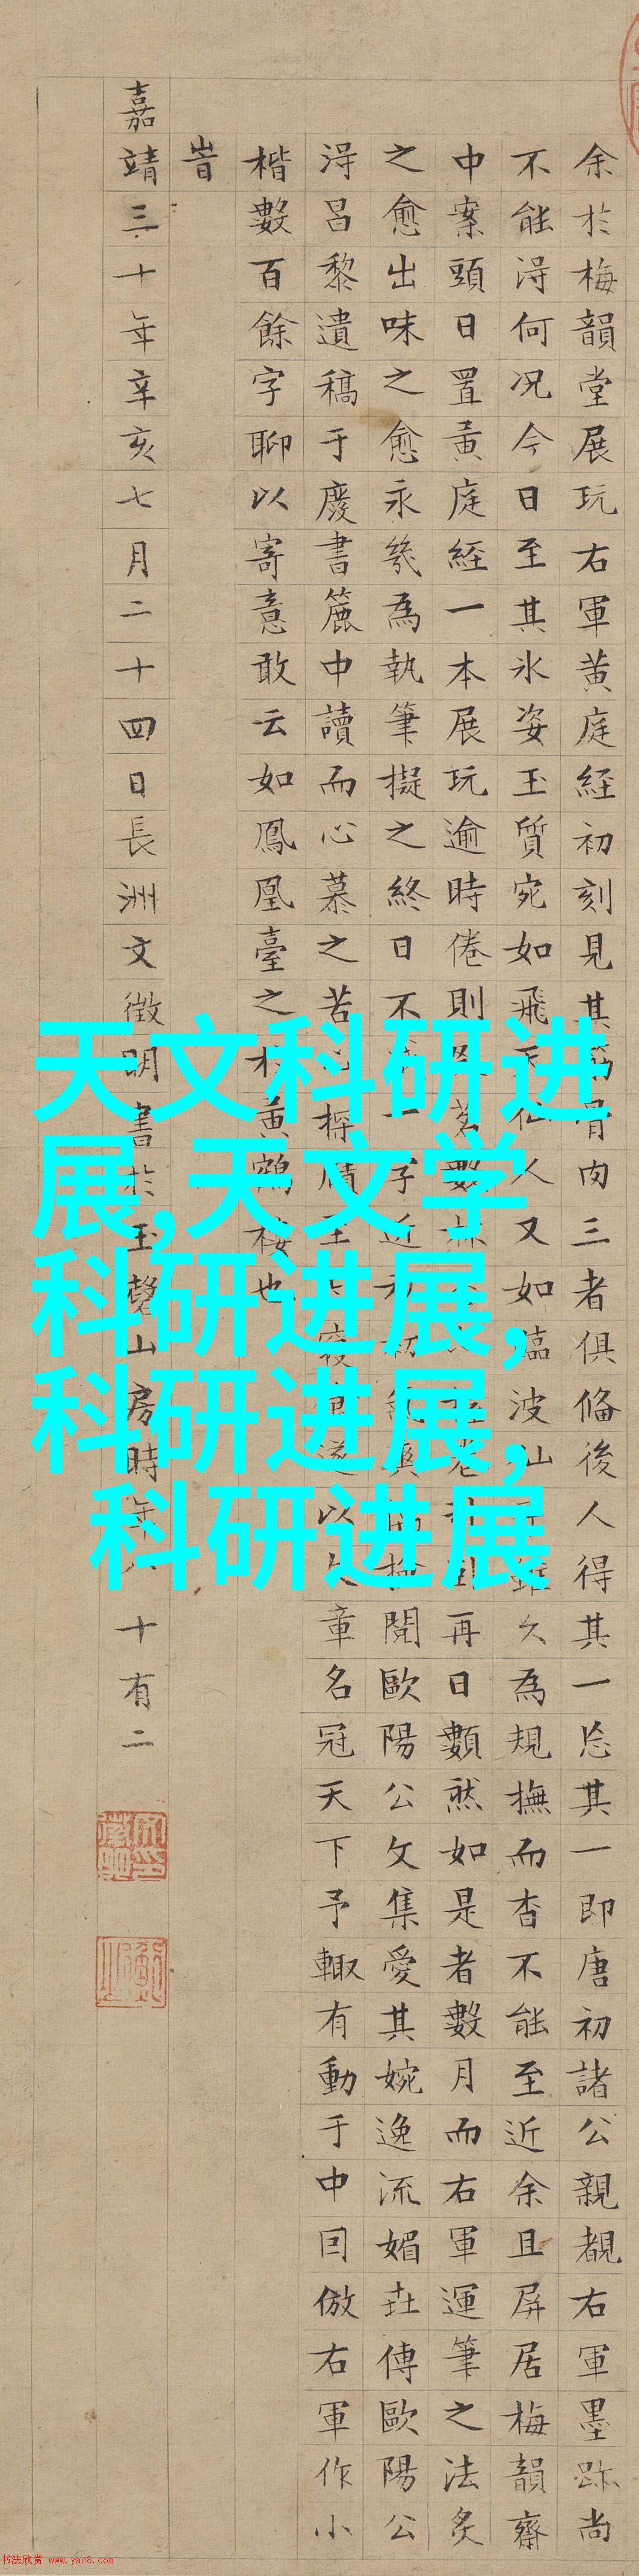 余於梅韻堂展玩右軍黄庭経初刻見其骨肉三者俱俻後人得其一忘其一即唐初諸公親覩右軍墨跡尚
不能淂何况今日至其氷姿玉質宛如飛仙人又如臨波仙雖久為規撫而杳不能至近余且屏居梅韻齋
中案頭日置黄庭経一本展玩逾時倦則茗數老再日數然如是者數月而右軍運筆之法炙
之愈出味之愈永㡬為執筆擬之終日不一字近檢閲歐陽公文集愛其婉逸流媚世傳歐陽公
淂吕黎遺稿于廢書簏中讀而心慕之苦探賾至寝遂以章名冠天下予輙有動于中囙倣右軍作小
楷數百餘字聊以寄意敢云如鳳凰臺之於黄鶴樓也
峕
嘉靖三十年辛亥七月二十四日長洲文徵明書於玉磬山房時年十有二
天文科研进
展,天文学
科研进展,
科研进展,
科研进展
书法欣赏 www.yac8.com